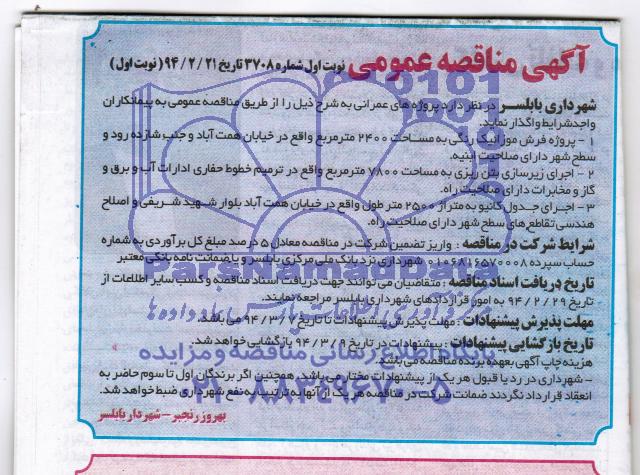 آگهی مناقصه عمومی نوبت اول شماره ۳۷۰۸ تاریخ ۹۴/۲/۲۱ (نوبت اول)
شهرداری بابلسر در نظر دارد پروژه های عمرانی به شرح ذیل را از طریق مناقصه عمومی به پیمانکاران
واجد شرایط واگذار نماید.
۱ - پروژه فرش موزائیک رنگی به مساحت ۲۴۰۰ مترمربع واقع در خیابان همت آباد و جنب شازده رود و
سطح شهر دارای صلاحیت ابنیه.
۲ - اجرای زیرسازی بتن ریزی به مساحت ۷۸۰۰ مترمربع واقع در ترمیم خطوط حفاری ادارات آب و برق و
گاز و مخابرات دارای صلاحیت راه.
۳ - اجرای جدول کانیو به متراژ ۲۵۰۰ متر طول واقع در خیابان همت آباد بلوار شهید شریفی و اصلاح
هندسی تقاطع های سطح شهر دارای صلاحیت راه.
شرایط شرکت در مناقصه : واریز تضمین شرکت در مناقصه معادل ۵ درصد مبلغ کل برآوردی به شماره
حساب سپرده ۰۱۰۶۸۱۶۵۷۰۰۰۸ شهرداری نزد بانک ملی مرکزی بابلسر و یا ضمانت نامه بانکی معتبر
ParsNamadData
تاریخ دریافت اسناد مناقصه : متقاضیان می توانند جهت دریافت اسناد مناقصه و کسب سایر اطلاعات از
تاریخ ۹۴/۲/۲۹ به امور قراردادهای شهرداری بابلسر مراجعه نمایند.
مهلت پذیرش پیشنهادات : مهلت پذیرش پیشنهادات تا تاریخ ۹۴/۳/۷ می باشد.
تاریخ بازگشایی پیشنهادات : پیشنهادات در تاریخ ۹۴/۳/۹ بازگشایی خواهد شد.
هزینه چاپ آگهی بعهده برنده مناقصه می باشد.
پایگاه اطلاع رسانی مناقصه و مزایده
- شهرداری در رد یا قبول هر یک از پیشنهادات مختار می باشد، همچنین اگر برندگان اول تا سوم حاضر به
انعقاد قرارداد نگردند ضمانت شرکت در مناقصه هر یک از آنها به ترتیب به نفع شهرداری ضبط خواهد شد.
۰۲۱-۸۸۳۴۹۶۷۰-۵
بهروز رنجبر - شهردار بابلسر